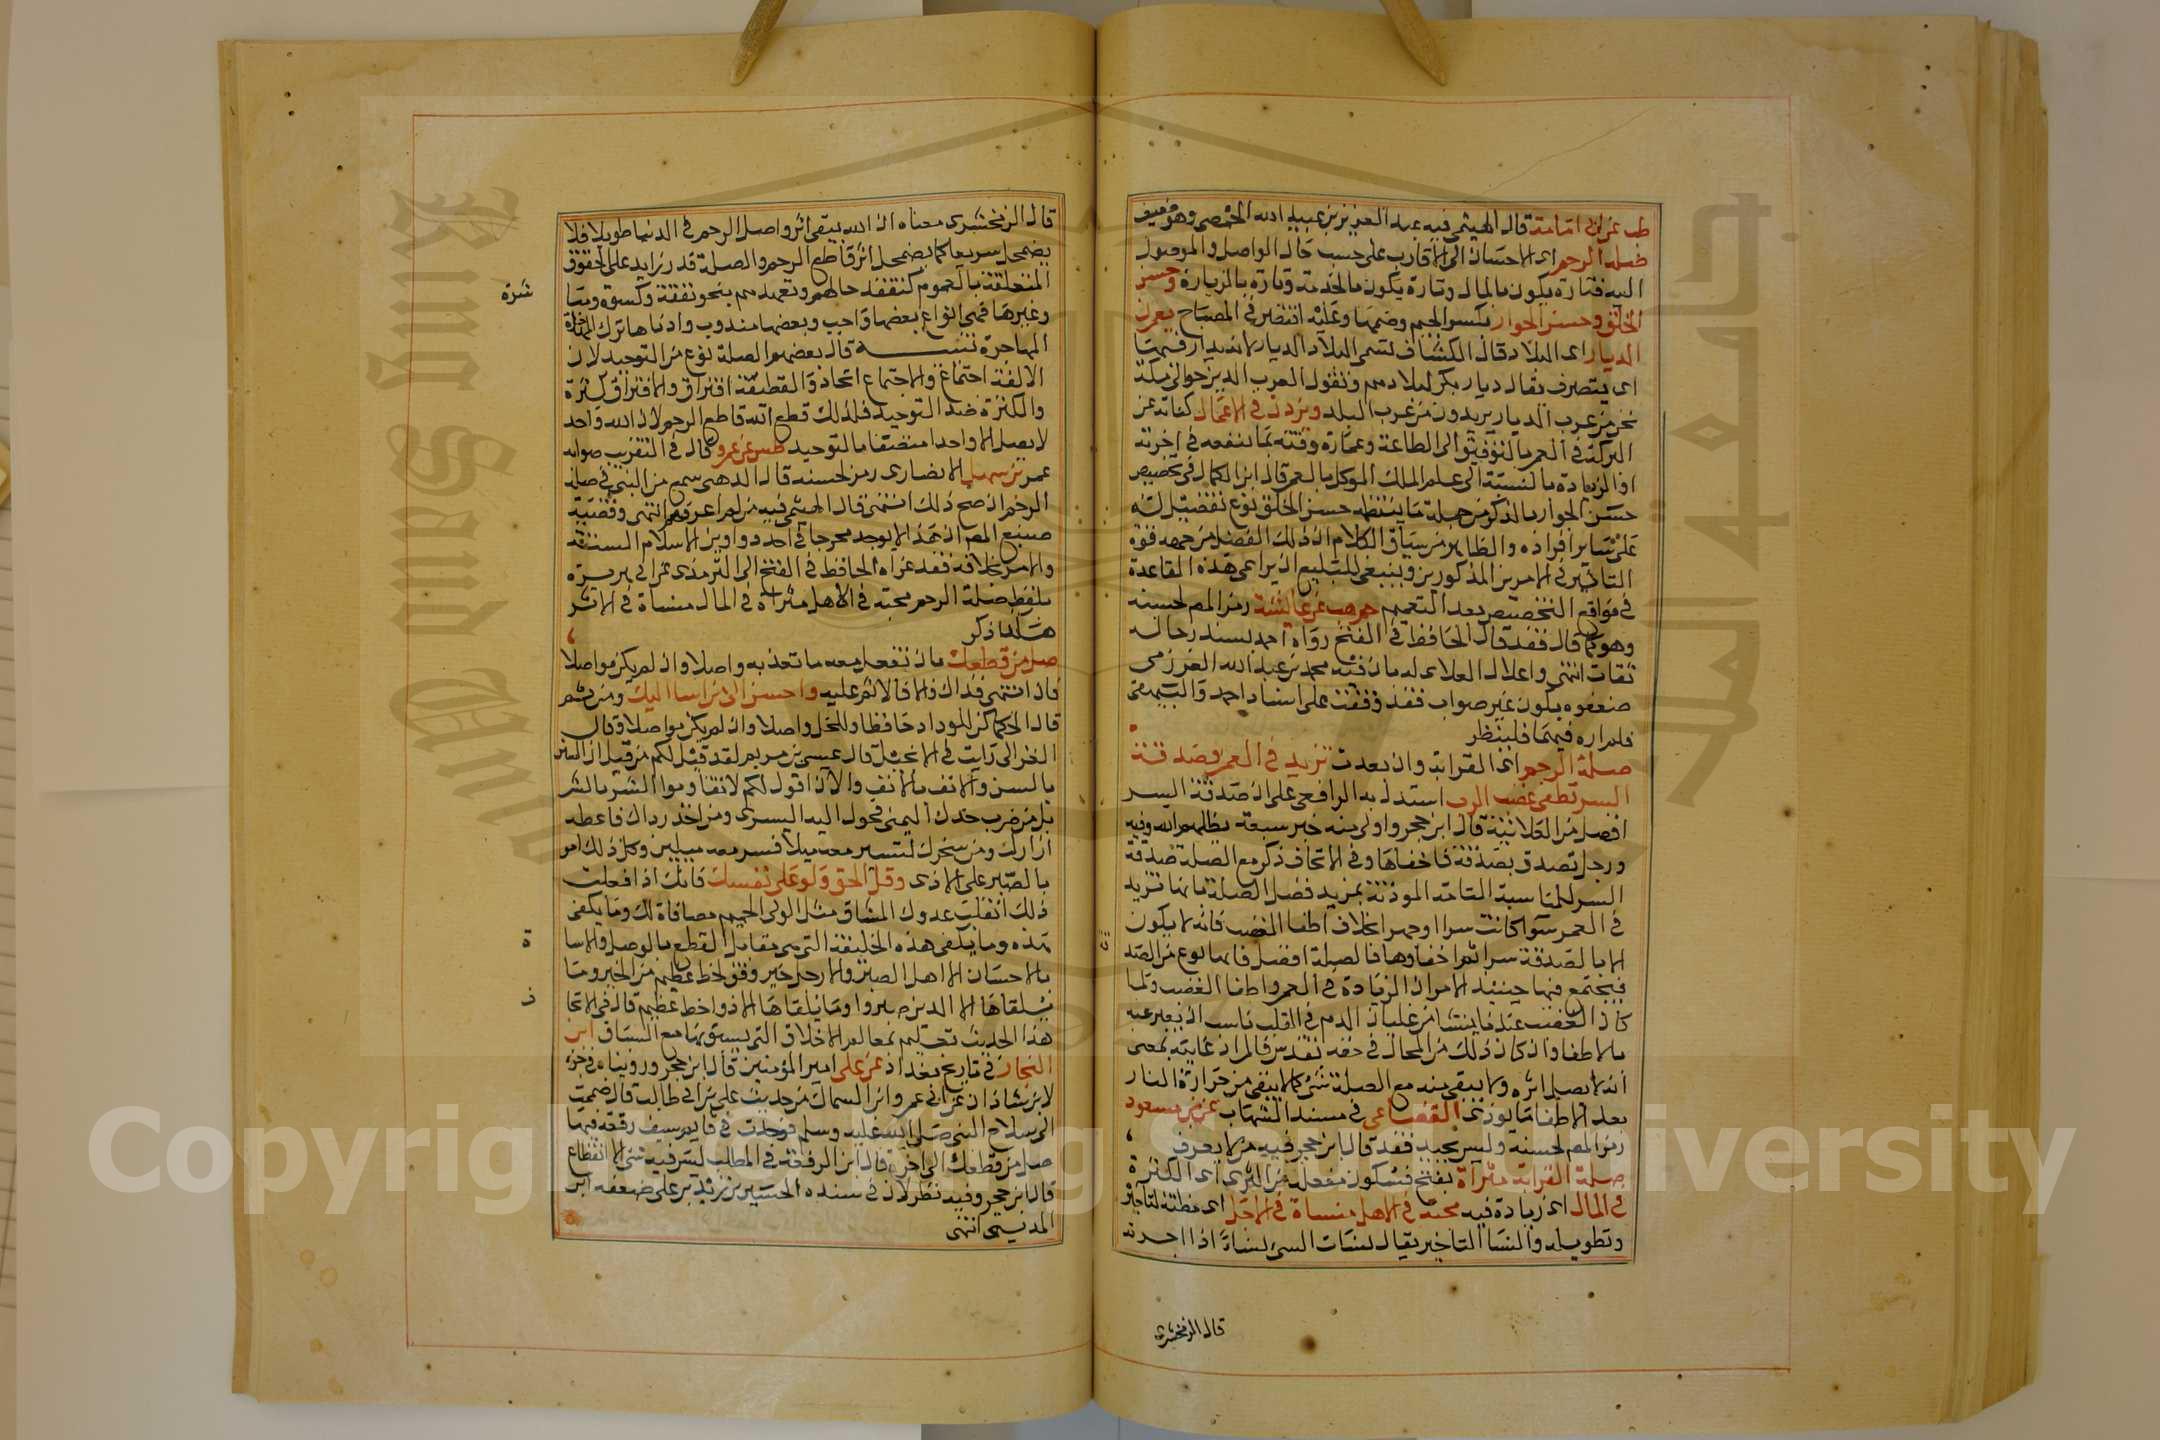 طب عن ابى امامة قال الهيثمى فيه عبد العزيز بن عبيد الله الحمصى وهو ضعيف
صلة الرحم اى الاحسان الى الاقارب على حسب حال الواصل والموصول
اليه فتارة يكون بالمال وتارة يكون بالخدمة وتارة بالزيارة وحسن
الخلق وحسن الجوار بكسر الجيم وضمها وعليه اقتصر فى المصباح يعمرن
الديار اى البلاد قال الكشاف تسمى البلاد الديار لانه يدار فيها
اى يتصرف يقال ديار بكر لبلادهم وتقول العرب الذين حوالى مكة
نحن من عرب الديار يريدون من عرب البلد ويزدن فى الاعمار كناية عن
البركة فى العمر بالتوفيق الى الطاعة وعمارة وقته بما ينفعه فى اخرته
او الزيادة بالنسبة الى علم الملك الموكل بالعمر قال ابن الكمال فى تخصيص
حسن الجوار بالذكر من جملة ما ينتظمه حسن الخلق نوع تفضيل له
على سائر افراده والظاهر من سياق الكلام ان ذلك الفضل من جهة قوة
التاثير فى الامرين المذكورين وينبغى للبليغ ان يراعى هذه القاعدة
فى مواقع التخصيص بعد التعميم حم هب عن عائشة رمز المص لحسنه
وهو كما قال فقد قال الحافظ فى الفتح رواه احمد بسند رجاله
ثقات انتهى واعلال العلاى له بان فيه محمد بن عبد الله العرزمى
ضعفوه يكون غير صواب فقد وقفت على اسناد احمد والبيهقى
فلم اره فيهما فلينظر
صلة الرحم اى القرابة وان بعدت تزيد فى العمر وصدقة
السر تطفى غضب الرب استدل به الرافعى على ان صدقة السر
افضل من العلانية قال ابن حجر واولى منه خبر سبعة يظلهم الله وفيه
ورجل تصدق بصدقة فاخفاها وفى الاتحاف ذكر مع الصلة صدقة
السر للمناسبة التامة الموذنة بمزيد فضل الصلة بانها تزيد
فى العمر سوا كانت سرا او جهرا بخلاف اطفا الغضب فانه لا يكون
الا بالصدقة سرا ثم اخفاوها فالصلة افضل فانها نوع من الصد
فيجتمع فيها حينئذ الامران الزيادة فى العمر واطفا الغضب ولما
كان الغضب عندنا ينشا من غليان الدم فى القلب ناسب ان يعبر عنه
بالاطفا وان كان ذلك من المحال فى حقه تقدس فالمراد غايته بمعنى
انه لا يصل اثره ولا يبقى منه مع الصلة شئ كما لا يبقى من حرارة النار
بعد الاطفا ما يوذى القضاعى فى مسند الشهاب عن ابن مسعود
رمز المص لحسنه وليس بجيد فقد قال ابن حجر فيه من لا يعرف
صلة القرابة مثراة بفتح فسكون مفعلة من الثرى اى الكثرة
فى المال اى زيادة فيه محبة فى الاهل منساة فى الاجل اى مظنة لتاخيره
وتطويله والنسا التاخير يقال نسات الشئ نساءً اذا اخرته
قال الزمخشرى
قال الزمخشرى معناه ان الله يبقى اثر واصل الرحم فى الدنيا طويلا فلا
يضمحل سريعا كما يضمحل اثر قاطع الرحم والصلة قدر زايد على الحقوق
المتعلقة بالعموم كتفقد حالهم وتعهدهم بنحو نفقة وكسوة
وغيرها فهى انواع بعضها واجب وبعضها مندوب وادناها ترك
المهاجرة تنبيه قال بعضهم الصلة نوع من التوحيد لان
الالفة اجتماع والاجتماع اتحاد والقطيعة افتراق والافتراق كثرة
والكثرة ضد التوحيد فلذلك قطع الله قاطع الرحم لان الله واحد
لا يصل الا واحدا متصفا بالتوحيد طس عن عمرو قال فى التقريب صوابه
عمر بن سهل الانصارى رمز لحسنه قال الذهبى سمع من النبى فى صلة
الرحم ان صح ذلك انتهى قال الهيثمى فيه من لم اعرفهم انتهى وقضية
صنيع المص ان هذا لا يوجد مخرجا فى احد دواوين الاسلام الستة
والامر بخلافه فقد عزاه الحافظ فى الفتح الى الترمذى عن ابى هريرة
بلفظ صلة الرحم محبة فى الاهل مثراة فى المال منساة فى الاثر
هكذا ذكر
صل من قطعك بان تفعل معه ما تعد به واصلا وان لم يكن مواصلا
فان انتهى فذاك والا فالاثم عليه واحسن الى من اسا اليك ومن ثم
قال الحكما كن للمودة حافظا وللخل واصلا وان لم يكن مواصلا وقال
الغزالى رايت فى الانجيل قال عيسى بن مريم لقد قيل لكم من قبل ان السن
بالسن والانف بالانف والان اقول لكم لا تقاوموا الشر بالشر
بل من ضرب خدك اليمنى فحول اليه اليسرى ومن اخذ رداك فاعطه
ازارك ومن سخرك لتسير معه ميلا فسر معه ميلين وكل ذلك امر
بالصبر على الاذى وقل الحق ولو على نفسك فانك اذا فعلت
ذلك انقلب عدوك المشاق مثل الولى الحميم مصافاة لك وما يلقى
هذه وما يلقى هذه الخليقة التى هى مقابل القطع بالوصل والاسا
بالاحسان الا اهل الصبر والا رجل خير وفق لحظ عظيم من الخير وما
يلقاها الا الذين صبروا وما يلقاها الا ذو حظ عظيم قال فى الاتحا
هذا الحديث تعليم لمعالم الاخلاق التى يستوى بها مع السباق ابن
النجار فى تاريخ بغداد عن على امير المؤمنين قال ابن حجر ورويناه فى جزء
لابن شاذان عن ابى عمرو ابن السماك من حديث على بن ابى طالب قال ضممت
الى سلاح النبى صلى الله عليه وسلم فوجدت فى قايم سيف رقعة فيها
صل من قطعك الى اخره قال ابن الرفعة فى المطلب ليس فيه شئ الا انقطاع
قال ابن حجر وفيه نظر لان فى سنده الحسين بن زيد بن على ضعفه ابن
المدينى انتهى
ة
ف